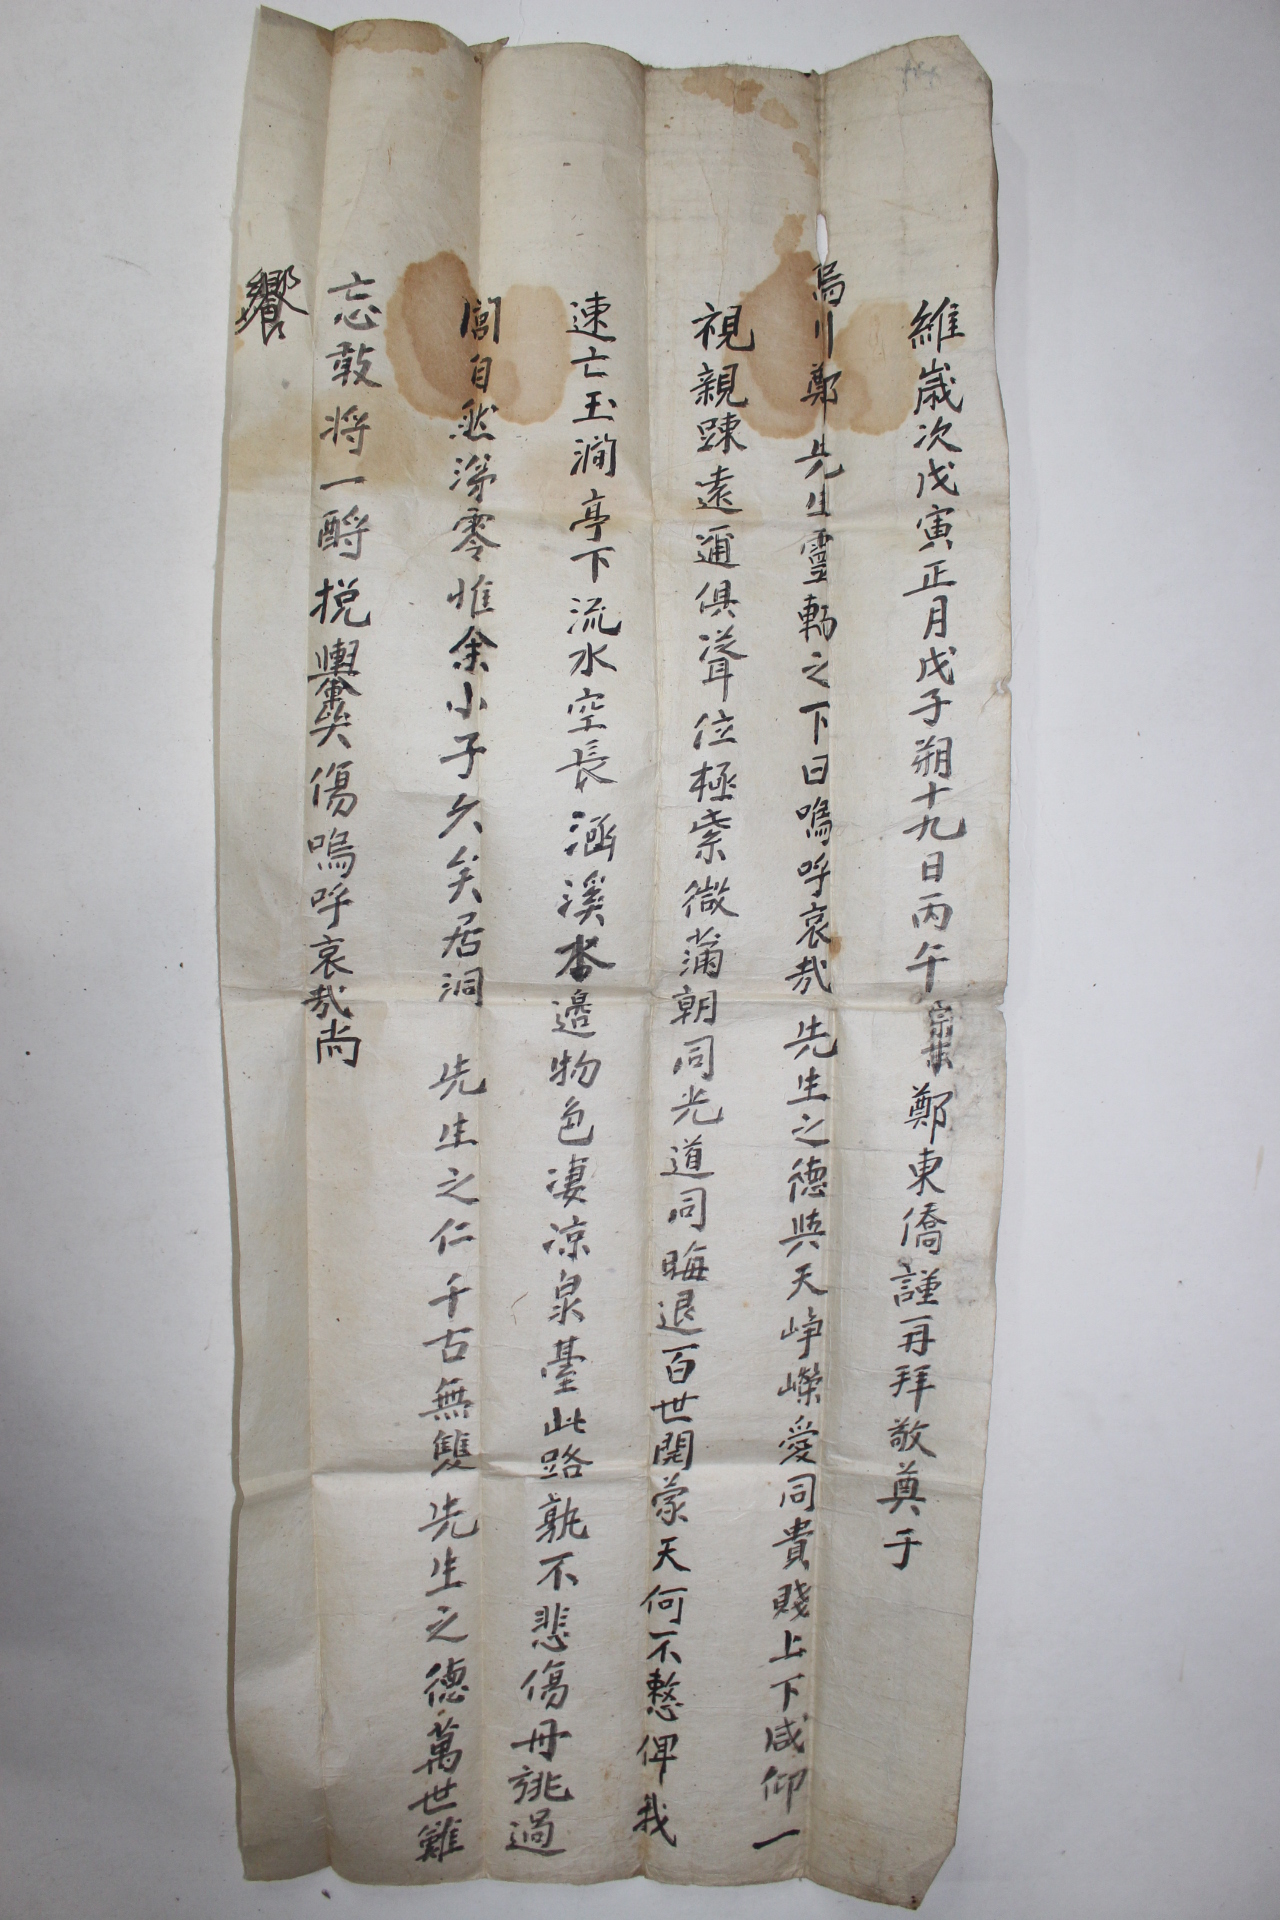 維歲次戊寅正月戊子朔十九日丙午宗末鄭東僑謹再拜敬奠于
烏川鄭先生靈輀之下曰嗚呼哀哉先生之德與天崢嶸愛同貴賤上下咸仰一
視親踈遠邇俱聳位極紫微蒲朝同光道同晦退百世開蒙天何不憖俾我
速亡玉澗亭下流水空長涵溪畓邊物色凄凉泉臺此路孰不悲傷毋誂過
閭自然涕零惟余小子久矣居洞 先生之仁千古無雙先生之德萬世難
忘敢將一酹挽轝哭傷嗚呼哀哉尚
饗